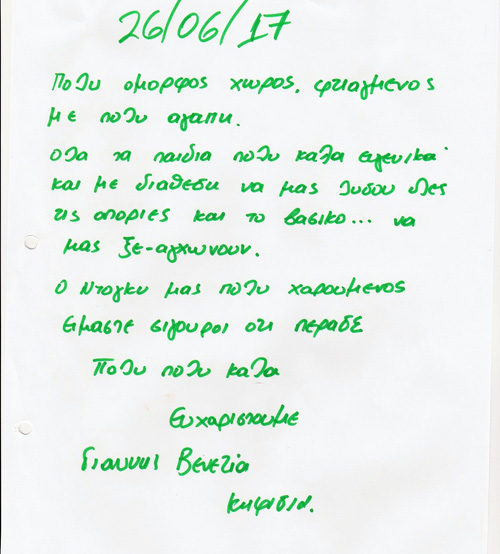 26/06/17
Πολυ ομορφος χωρος. φτιαγμενος
με πολυ αγαπη.
Ολα τα παιδια πολυ καλα ευγενικα
και με διαθεση να μας λυσουν ολες
τις αποριες και το βασικο... να
μας ξε-αγχωνουν.
Ο Ντογκυ μας πολυ χαρουμενος
Ειμαστε σιγουροι οτι περασε
Πολυ πολυ καλα
Ευχαριστουμε
Γιαννης Βενετια
Κηφισια.